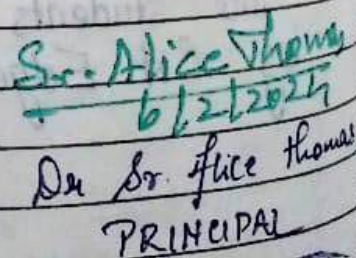 Sr. Alice Thomas
6/2/2025
Dr Sr. Alice Thomas
PRINCIPAL